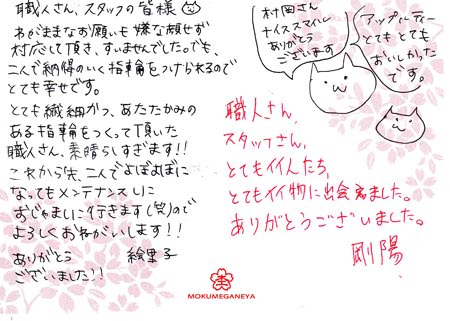 職人さん、スタッフの皆様
わがままなお願いも嫌な顔せず
対応して頂き、すいませんでした。でも、
二人で納得のいく指輪をつけられるので
とても幸せです。
とても繊細かつ、あたたかみの
ある指輪をつくって頂いた
職人さん、素晴らしすぎます!!
これから先、二人でよぼよぼに
なってもメンテナンスしに
おじゃましに行きます(笑)ので
よろしくおねがいします!!
ありがとう
ございました!!
絵里子
村岡さん
ナイススマイル
ありがとう
ございます
アップルティー
とてもとても
おいしかった
です。
職人さん、
スタッフさん、
とてもイイ人たち、
とてもイイ物に出会えました。
ありがとうございました。
剛陽
MOKUMEGANEYA